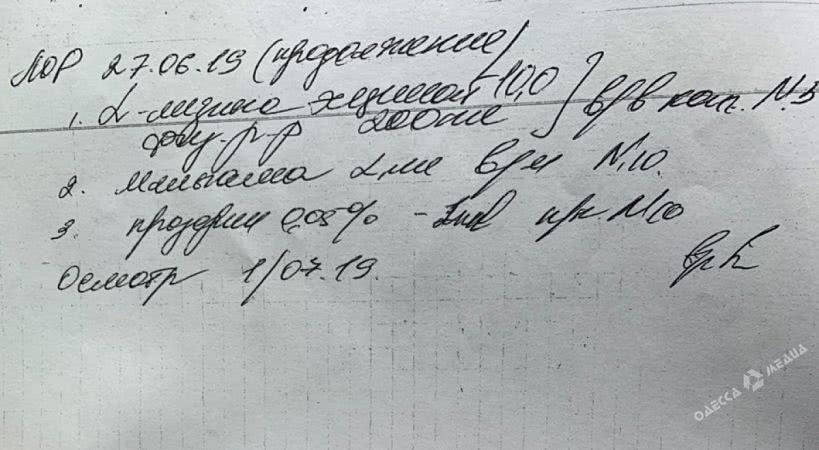 ЛОР 27.06.19 (продолжение)
1. L-лизина эсцинат-10,0
физ. р-р 200мл } в/в кап. N.5
2. 2мл в/м N10.
3. прозерин 0,05% - 1мл п/к N10
Осмотр 1/07.19.
ОДЕССА МЕДИА